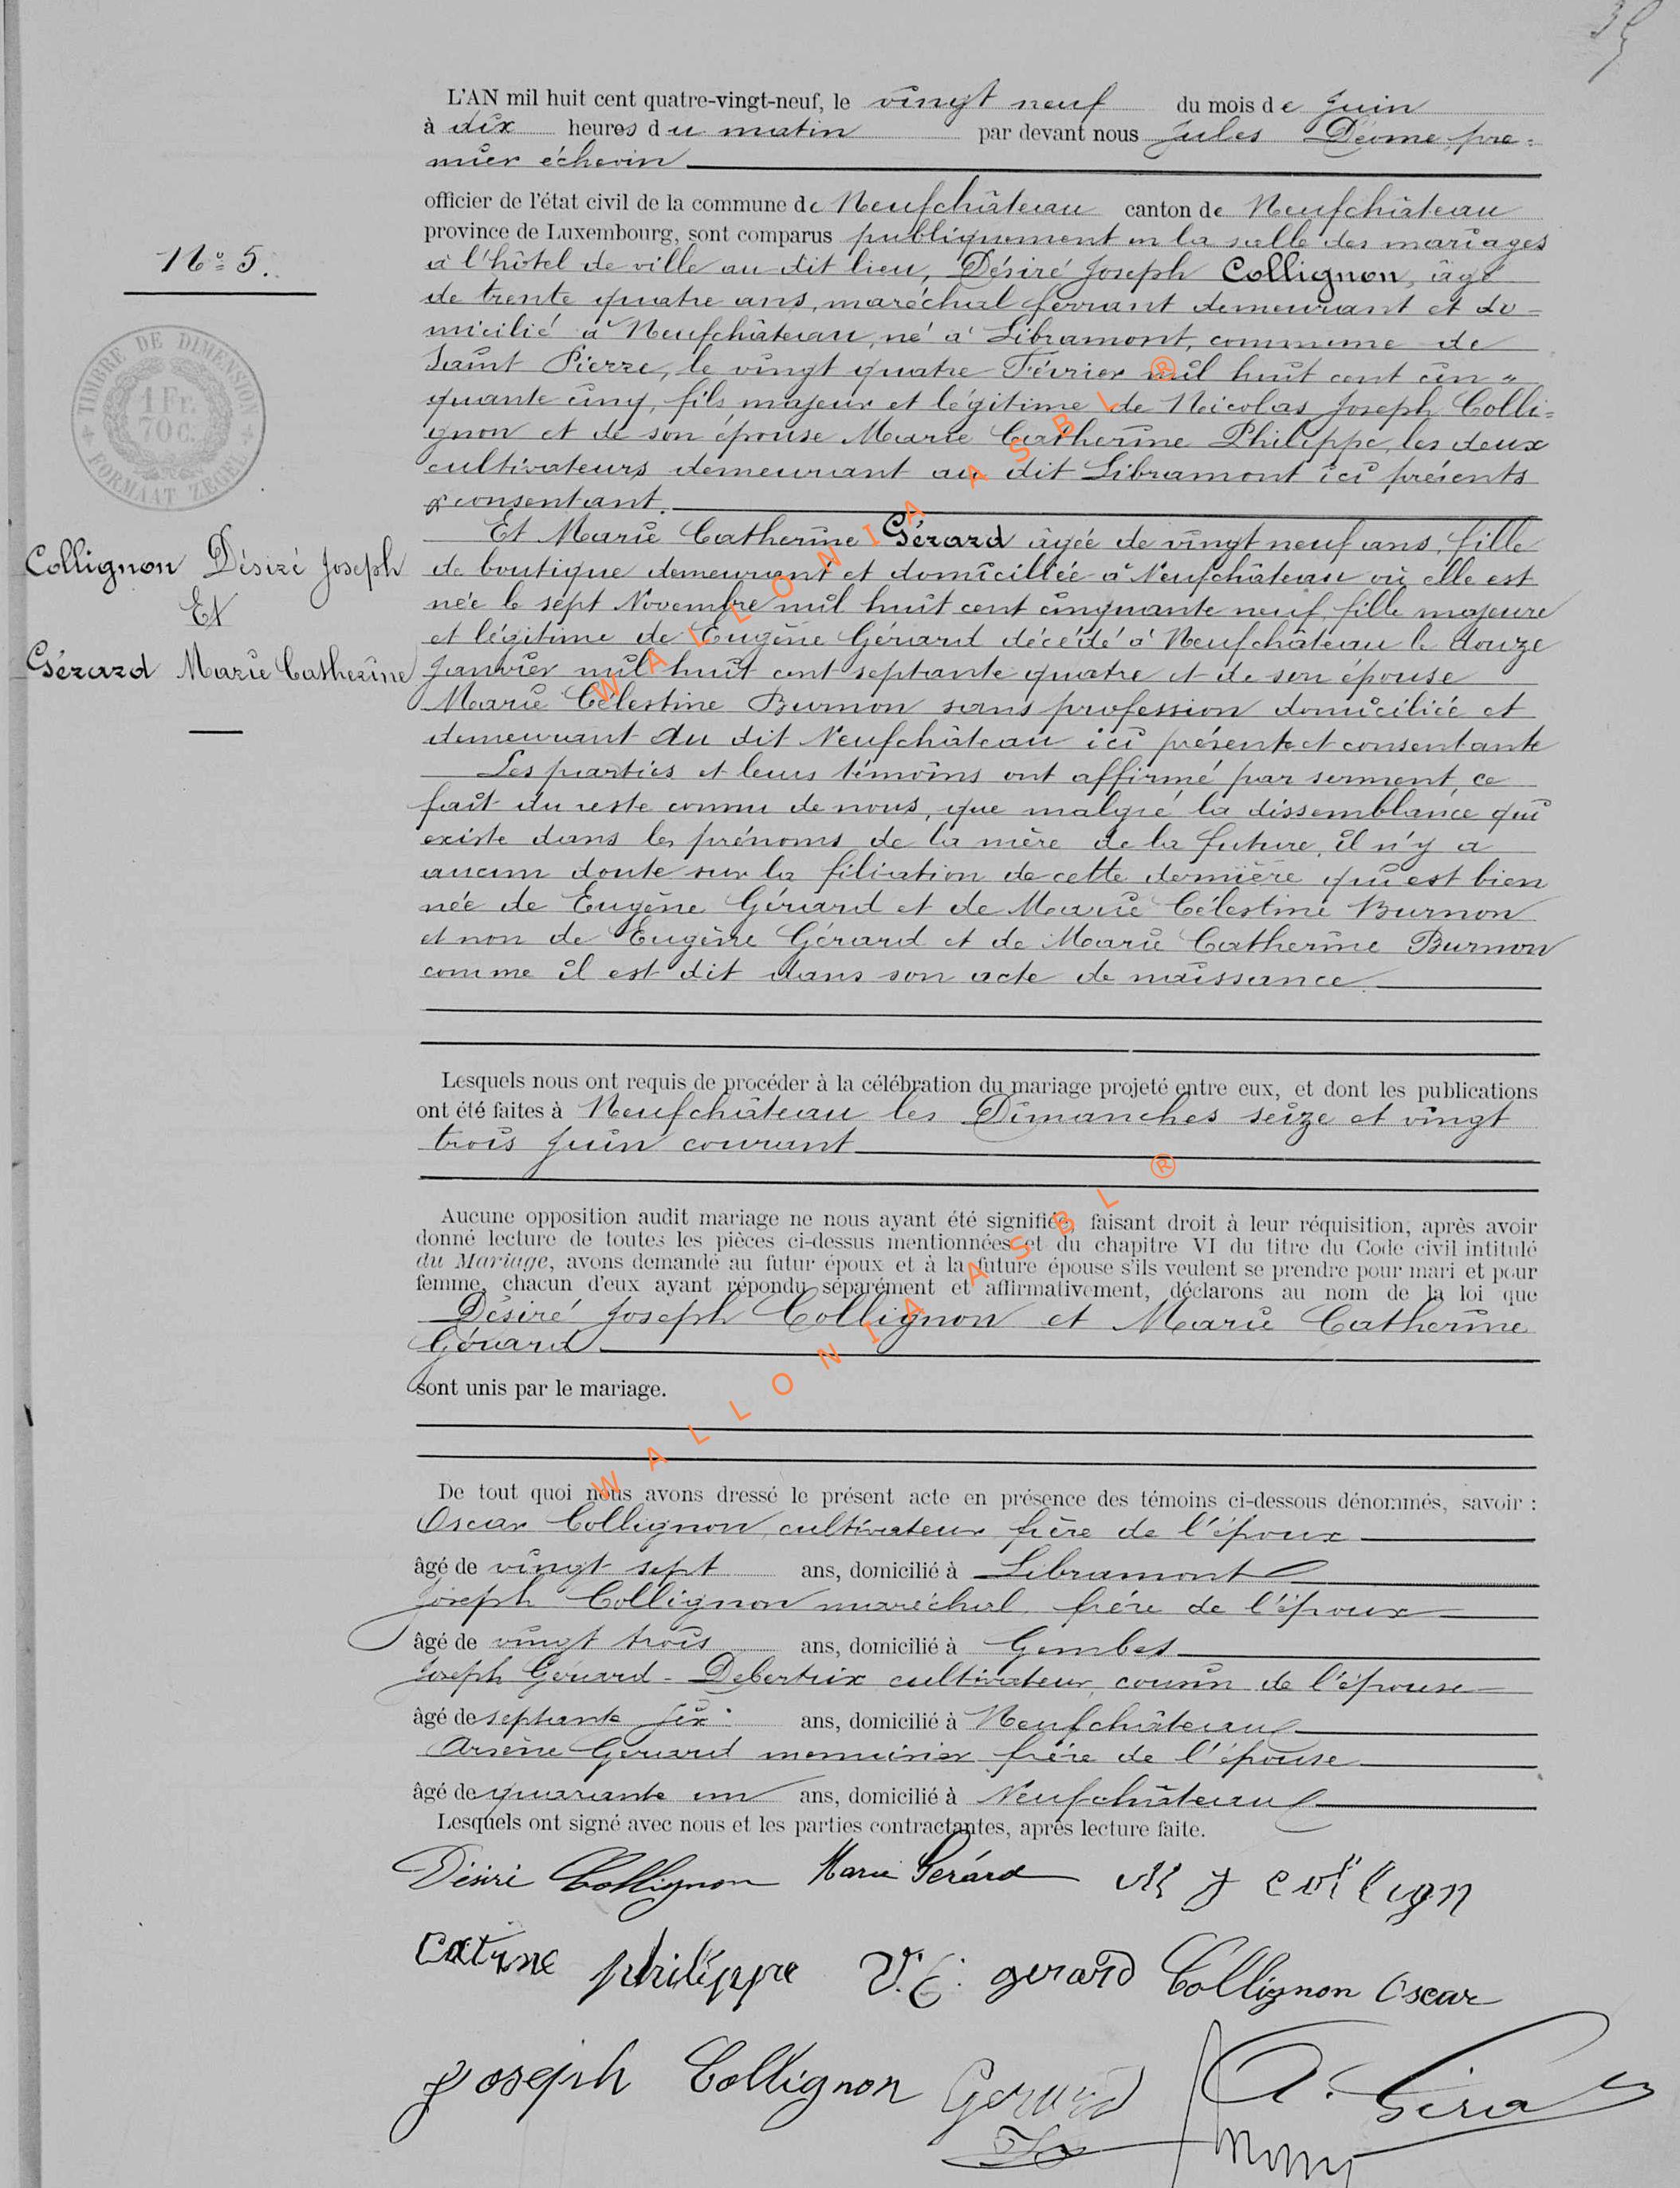 L'AN mil huit cent quatre-vingt-neuf, le vingt neuf du mois de Juin
à dix heures du matin par devant nous Jules pre=
mier échevin
officier de l'état civil de la commune de Neufchâteau canton de Neufchâteau
province de Luxembourg, sont comparus publiquement en la salle des mariages
à l'hôtel de ville au dit lieu, Désiré Joseph Collignon, âgé
de trente quatre ans, maréchal ferrant demeurant et do=
micilié à Neufchâteau, né à Libramont, commune de
Saint Pierre, le vingt quatre Février mil huit cent cin"
quante cinq, fils majeur et légitime de Nicolas Joseph Colli=
gnon et de son épouse Marie Catherine Philippe, les deux
cultivateurs, demeurant au dit Libramont ici présents
& consentant.
Et Marie Catherine Gérard âgée de vingt neuf ans, fille
de boutique demeurant et domiciliée à Neufchâteau où elle est
née le sept Novembre mil huit cent cinquante neuf, fille majeure
et légitime de Eugène Gérard décédé à Neufchâteau le douze
Janvier mil huit cent septante quatre et de son épouse
Marie Célestine Burnon sans profession domiciliée et
demeurant au dit Neufchâteau ici présente et consentante
Les parties et leurs témoins ont affirmé par serment, ce
fait du reste connu de nous, que malgré la dissemblance qui
existe dans les prénoms de la mère de la future, il n'y a
aucun doute sur la filiation de cette dernière qui est bien
née de Eugène Gérard et de Marie Célestine Burnon
et non de Eugène Gérard et de Marie Catherine Burnon
comme il est dit dans son acte de naissance
Lesquels nous ont requis de procéder à la célébration du mariage projeté entre eux, et dont les publications
ont été faites à Neufchâteau les Dimanches seize et vingt
trois Juin courant
Aucune opposition audit mariage ne nous ayant été signifiée, faisant droit à leur réquisition, après avoir
donné lecture de toutes les pièces ci-dessus mentionnées et du chapitre VI du titre du Code civil intitulé
du Mariage, avons demandé au futur époux et à la future épouse s'ils veulent se prendre pour mari et pour
femme, chacun d'eux ayant répondu séparément et affirmativement, déclarons au nom de la loi que
Désiré Joseph Collignon et Marie Catherine
Gérard
sont unis par le mariage.
De tout quoi nous avons dressé le présent acte en présence des témoins ci-dessous dénommés, savoir :
Oscar Collignon, cultivateur, frère de l'époux
âgé de vingt sept ans, domicilié à Libramont
Joseph Collignon maréchal, frère de l'époux
âgé de vingt trois ans, domicilié à Gembes
Joseph Gérard - Debertrix cultivateur, cousin de l'épouse
âgé de septante six ans, domicilié à Neufchâteau
Arsène Gérard menuisier frère de l'épouse
âgé de quarante un ans, domicilié à Neufchâteau
Lesquels ont signé avec nous et les parties contractantes, après lecture faite.
Désiré Collignon Marie Gerárd
Catrine philippe V. E. gerard Collignon Oscar
Joseph Collignon Gerard
No 5.
TIMBRE DE DIMENSION
1 FR.
70 C.
FORMAAT ZEGEL
Collignon Désiré Joseph
Et
Gérard Marie Catherine
WALLONIA ASBL ®
WALLONIA ASBL ®